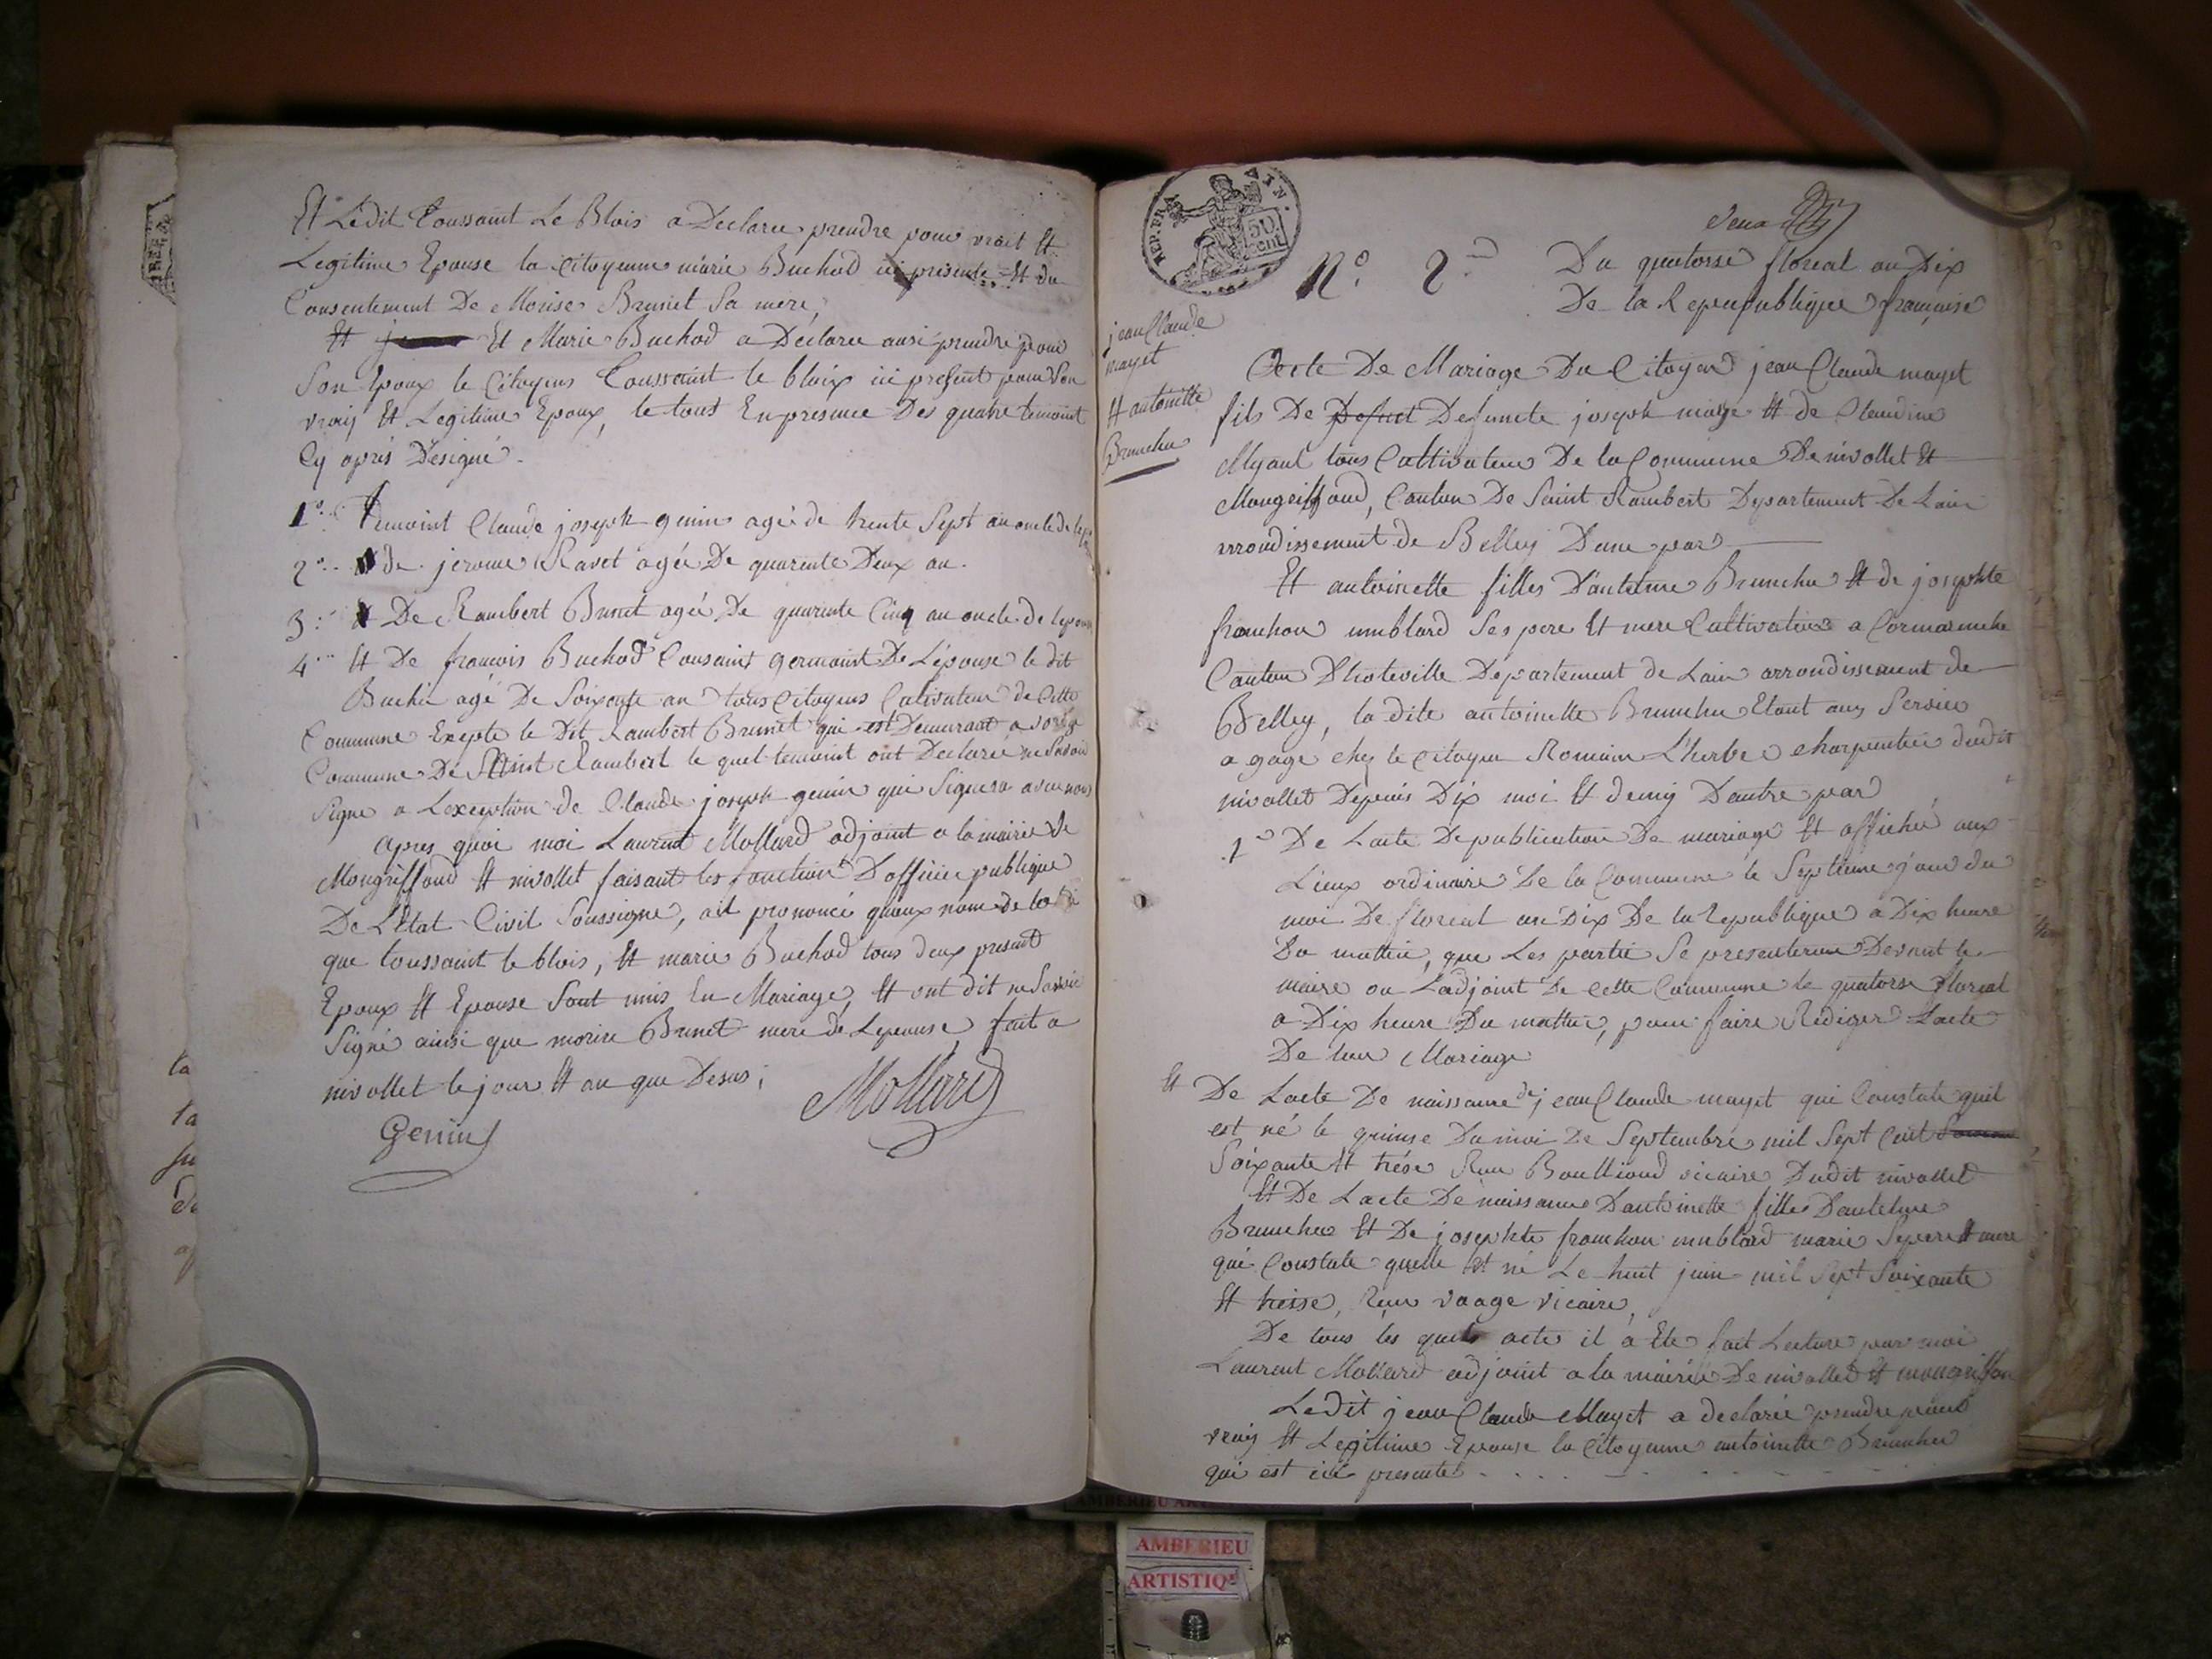 Et Ledit Toussaint Le Blois a Declaree prendre pour vrait Et
Legitime Epouse la Citoyenne marie Buchod ici presente Et du
Consentement De Morise Brunet Sa mere,
Et Et Marie Buchod a Déclaree ausi prendre pour
Son Epoux le Citoyens Toussaint le bloix ici present pour Son
vraiy Et Legitime Epoux, le tout En presence Des quatre temoint
Cy aprés Désigné.
1º. Temoint Claude joseph genin agé de trente Sept an oncle de
2º. de jerome Ravet agée De quarente Deux an.
3º. Et De Rambert Brunet agée De quarente Cinq an oncle de lepouse
4º. Et De francois Buchod Cousaint germaint De L'épouse le dit
Buchod agé De Soixante an tous Citoyens Cultivateur de Cette
Commune Exepte le Dit Rambert Brunet qui est Demurant a
Commune De Saint Rambert le quel temoint ont Declarée ne Savoir
Signe a Lexception de Claude joseph genin qui Signera avec nous
apres quoi moi Laurent Mollard adjoint a la mairie de
Mongriffond Et nivollet faisant les fonction D'officier publique
De L'Etat Civil Soussigne, ait prononcé quaux nom de la loi
que toussaint le blois, Et marie Buchod tous deux present
Epoux Et Epouse Sont unis En Mariage, Et ont dit ne Savoir
Signé ainsi que morise Brunet mere de Lepouse, fait a
nivollet le jour Et an que Desus;
Mollard
Genin
REP. FRA
50 cent
deux
Nº. 2. Du quatorse floreal an Dix
De la Repeupublique française
jean Claude
mayet
Et antoinette
Brunchu
Acte De Mariage Du Citoyen jean Claude mayet
fils De Defunt Defuncte joseph maye Et de Claudine
Myant tous Cultivateur De la Commune De nivollet Et
Mongriffond, Canton De Saint Rambert Departement De Lain
arrondissement de Belley D'une par
Et antoinette filles D'antelme Brunchu Et de josephte
franchon umblard Ses pere Et mere Cultivateur a Cormaranche
Canton D'hoteville Departement de Lain arrondissement de
Belley, la dite antoinette Brunchu Etant aux Service
a gage chez le Citoyen Romain L'herbe charpentier dudit
nivollet Depuis Dix moi Et demy D'autre par
1º De Lacte De publication De mariage Et affichée aux
Lieux ordinaire De la Commune le Septieme jour du
moi De floreal an Dix De la Republique a Dix heure
Du mattin, que Les partie Se presenterai Devant le
maire ou Ladjoint De Cette Commune le quatorse floreal
a Dix heure Du mattin, pour faire Rédiger Lacte
De leur Mariage
Et De Lacte De naissance de jean Claude mayet qui Constate quil
est né le quinse Du moi De Septembre mil Sept Cent
Soixante Et trése Vicaire Dudit nivollet
Et De Lacte De naissance D'antoinette filles D'antelme
Brunchu Et De josephte franchon umblard marie Sepere Et mere
qui Constate quelle Et né Le huit juin mil Sept Soixante
Et treise, vicaire,
De tous les quels acte il a Ete fait Lecture par moi
Laurent Mollard adjoint a la mairie De nivollet Et mongriffon
Ledit jean Claude Mayet a declarée prendre pour
vraiy Et Legitime Epouse la Citoyenne antoinette Brunchu
qui est ici presente
AMBERIEU
ARTISTIQUE